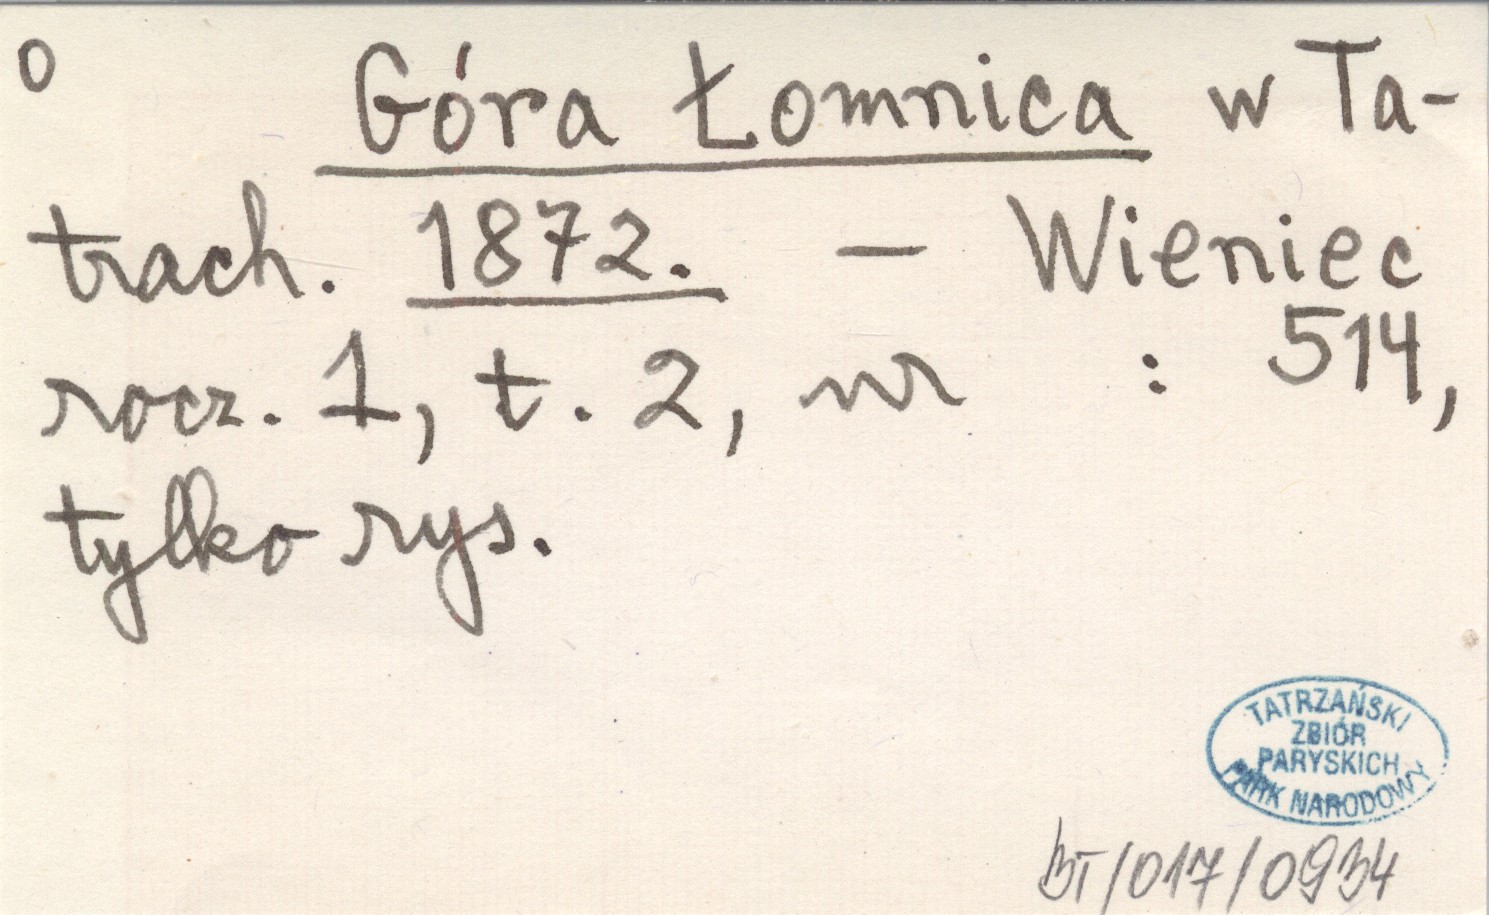 o Góra Łomnica w Ta-
trach. 1872. — Wieniec
rocz. 1, t. 2, nr : 514,
tylko rys.
TATRZAŃSKI
ZBIÓR
PARYSKICH
PARK NARODOWY
BT/017/0934